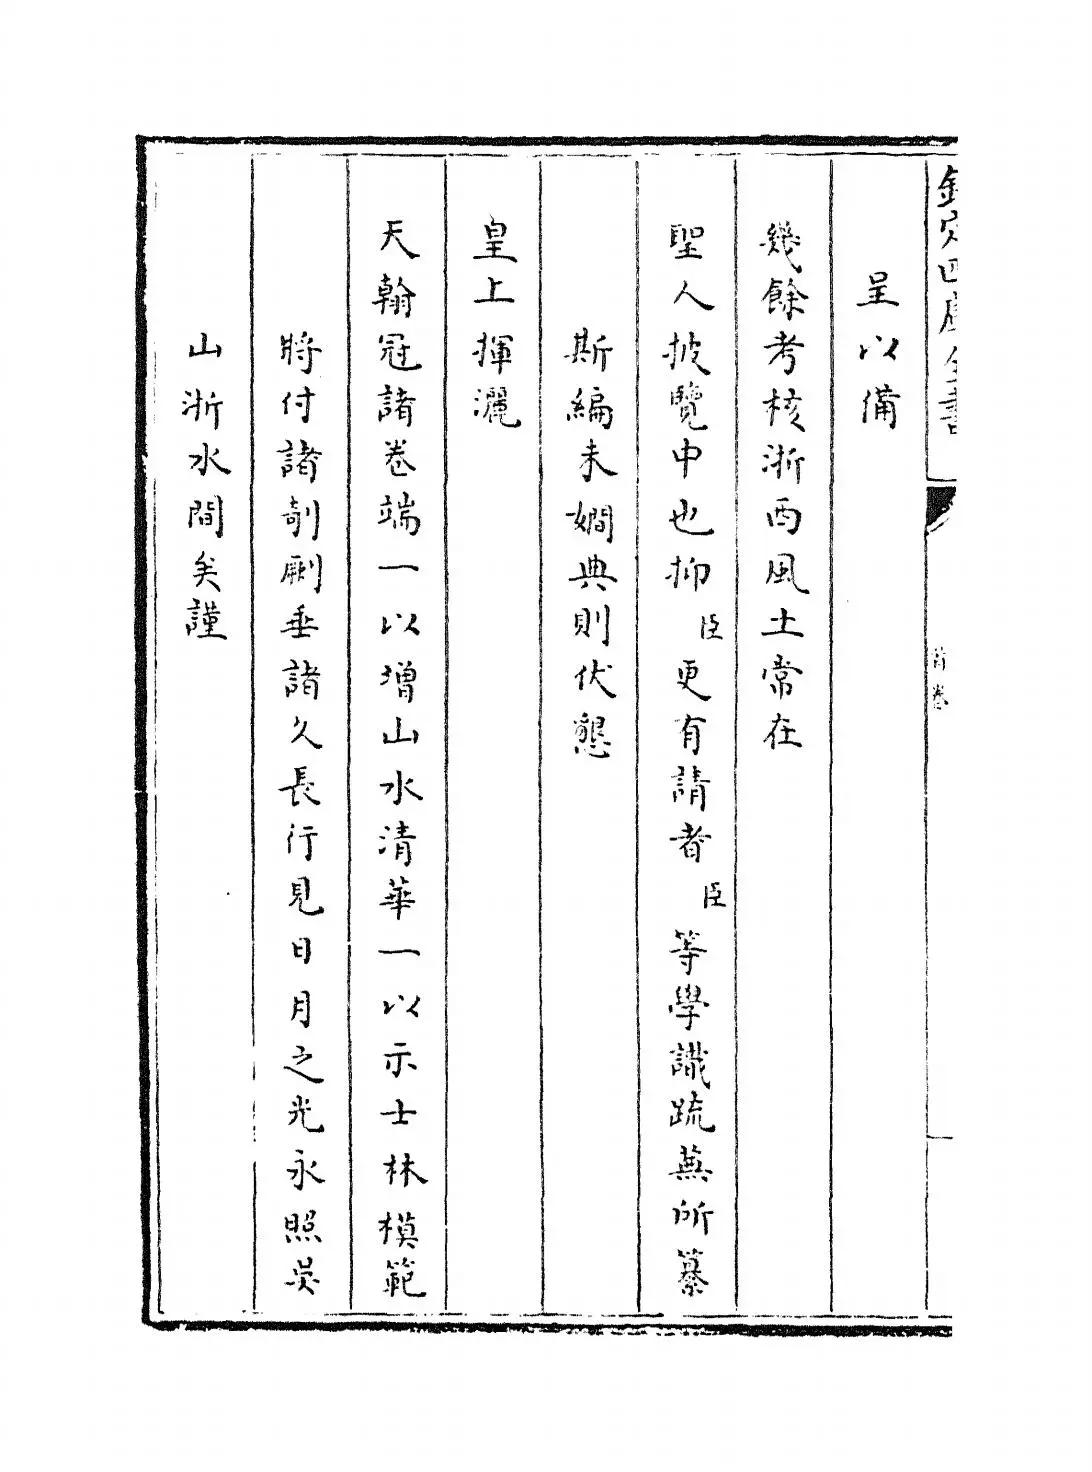 欽定四庫全書
首卷
呈以備
幾餘考核浙西風土常在
聖人披覽中也抑臣更有請者臣等學識疏蕪所纂
斯編未嫺典則伏懇
皇上揮灑
天翰冠諸卷端一以增山水清華一以示士林模範
將付諸剞劂垂諸久長行見日月之光永照吳
山浙水間矣謹